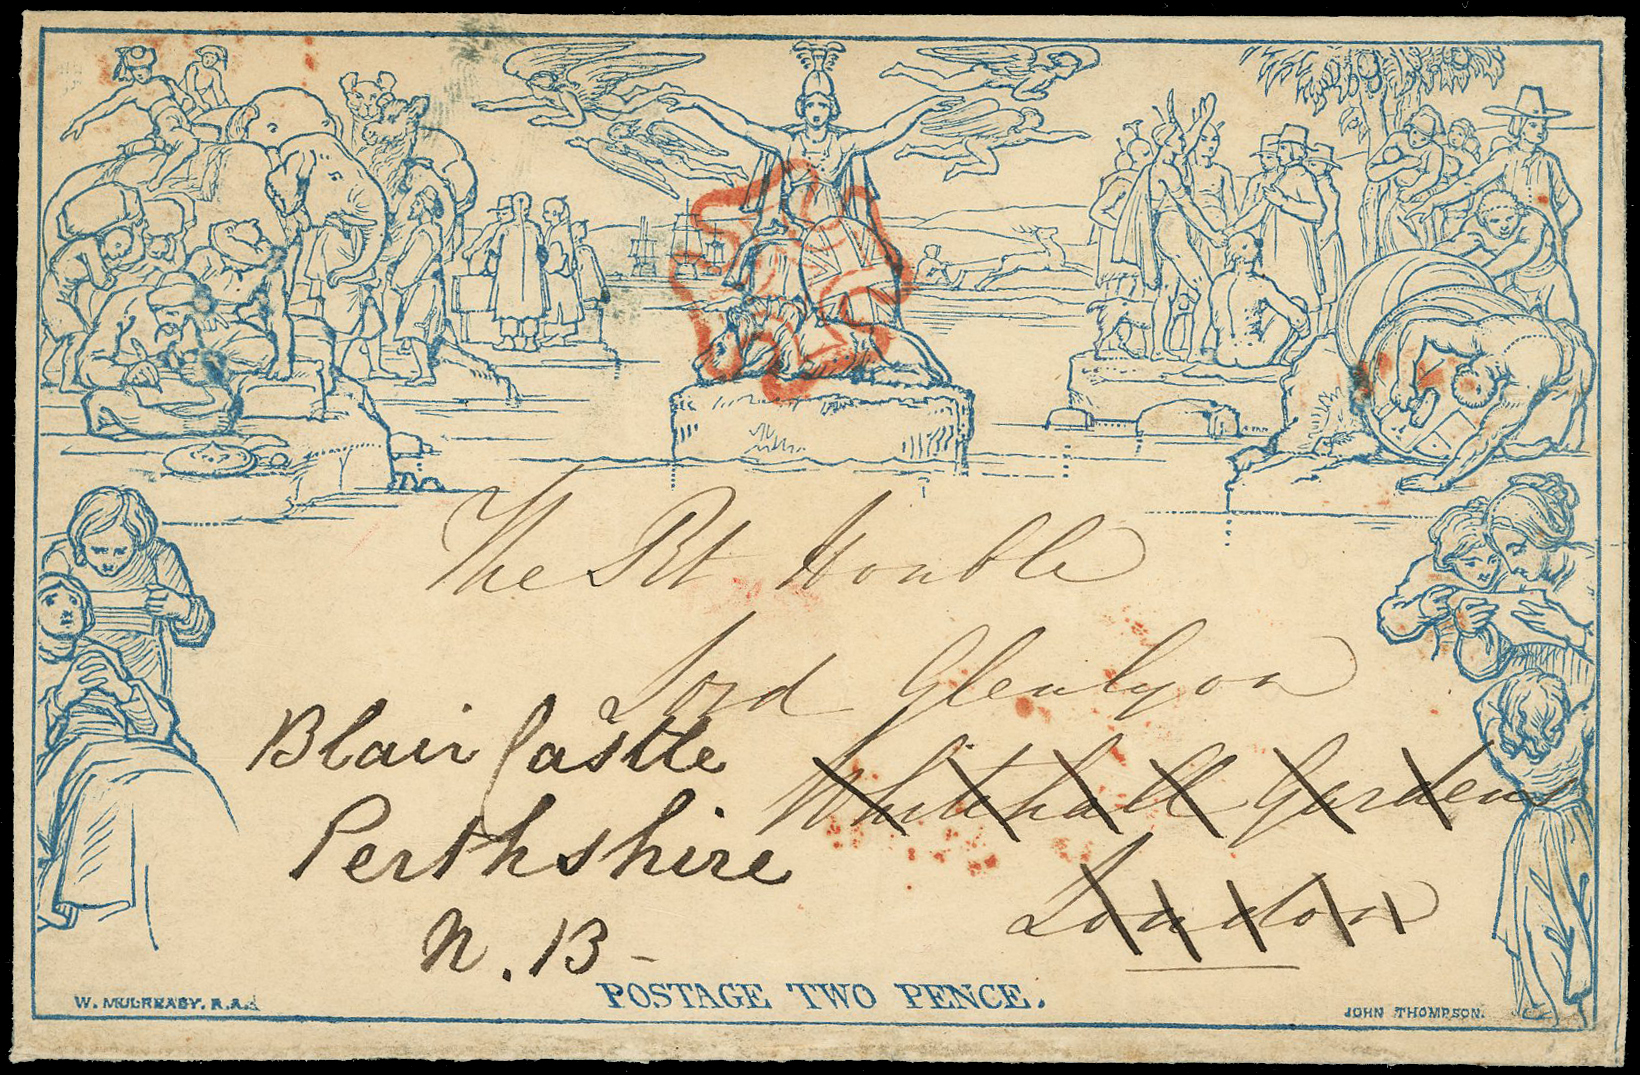 The Rt Honble
Lord Glenlyon
Whitehall Gardens
London
Blair Castle
Perthshire
N. B-
POSTAGE TWO PENCE.
W. MULREADY. R.A.
JOHN THOMPSON.